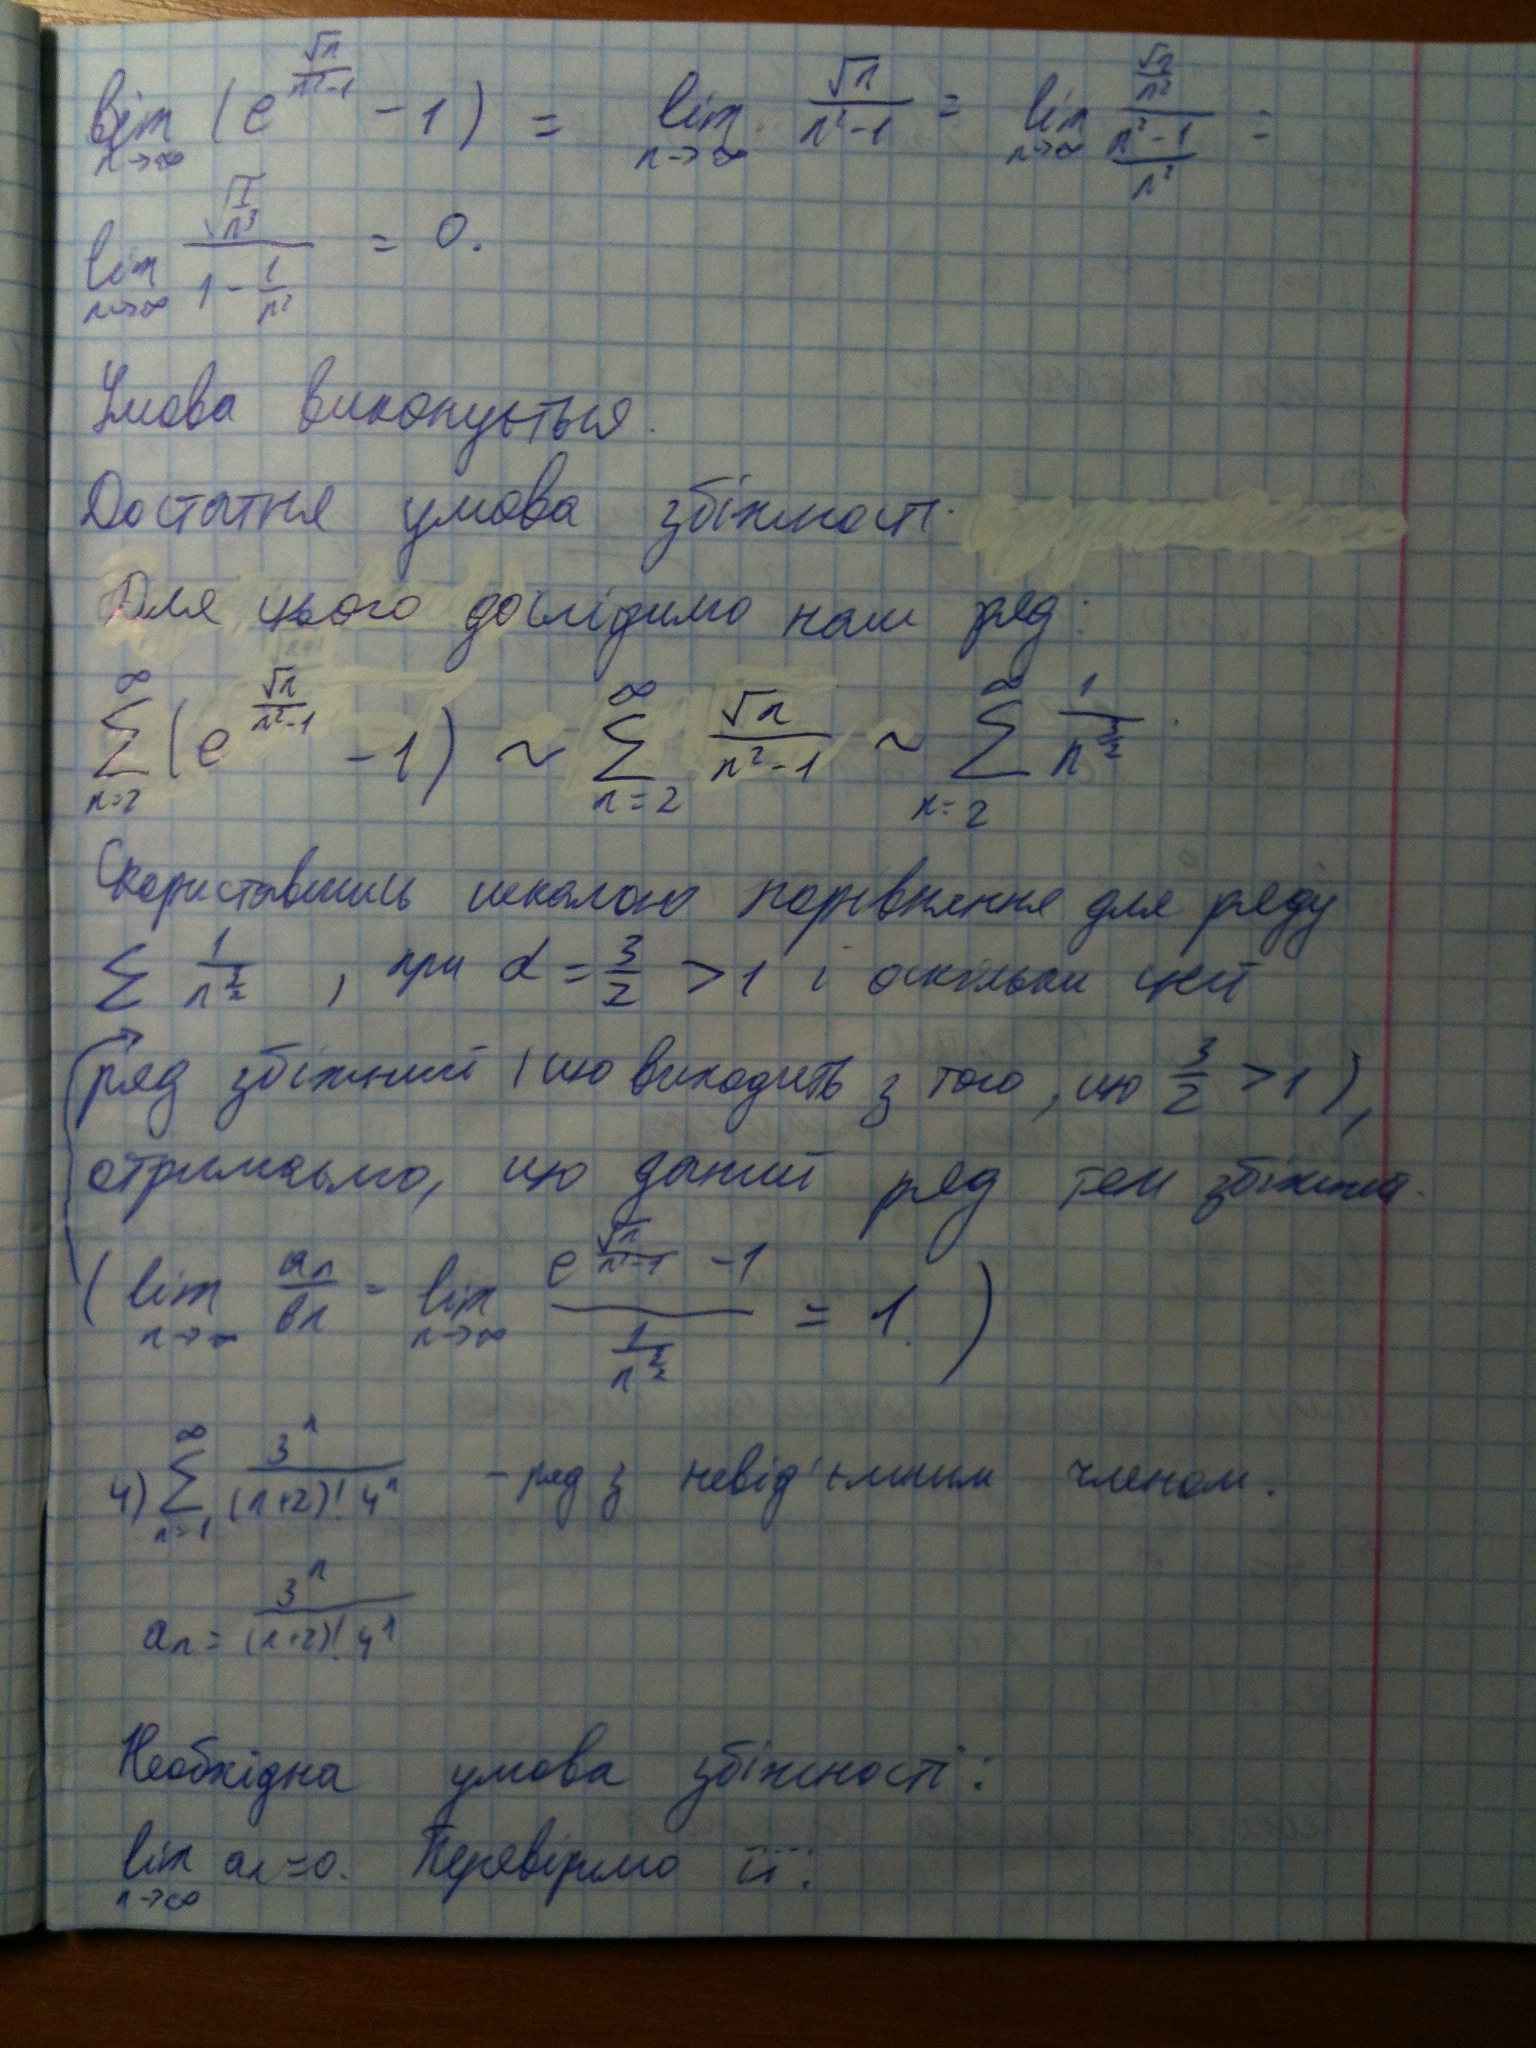 lim_{n→∞} (e^{√n/(n²-1)} - 1) = lim_{n→∞} √n/(n²-1) = lim_{n→∞} (√n/n²)/((n²-1)/n²) =
lim_{n→∞} √(1/n³)/(1 - 1/n²) = 0.
Умова виконується.
Достатня умова збіжності.
Для цього дослідимо наш ряд:
∑_{n=2}^{∞} (e^{√n/(n²-1)} - 1) ~ ∑_{n=2}^{∞} √n/(n²-1) ~ ∑_{n=2}^{∞} 1/n^{3/2}
Скориставшись шкалою порівняння для ряду
∑ 1/n^{3/2}, при α = 3/2 > 1 і оскільки цей
ряд збіжний (що виходить з того, що 3/2 > 1),
отримаємо, що даний ряд теж збіжний.
(lim_{n→∞} an/bn = lim_{n→∞} (e^{√n/(n²-1)} - 1)/(1/n^{3/2}) = 1.)
4) ∑_{n=1}^{∞} 3^n/((n+2)! 4^n) - ряд з невід'ємним членом.
an = 3^n/((n+2)! 4^n)
Необхідна умова збіжності:
lim_{n→∞} an = 0. Перевіримо її: